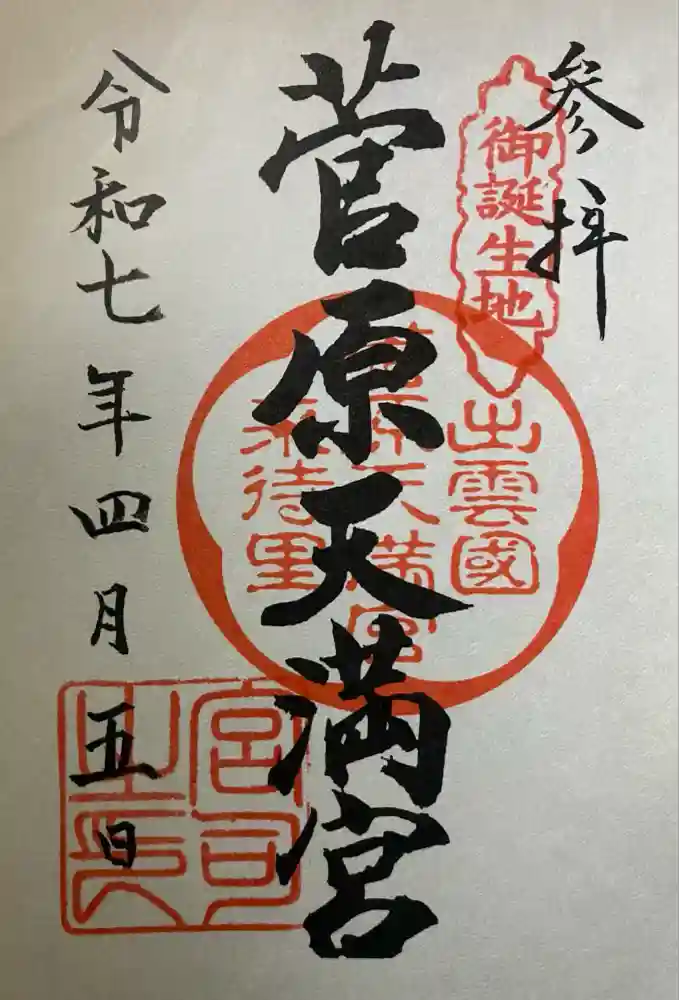 参拝
御誕生地
出雲國
菅原天満宮
来待里
菅原天満宮
令和七年四月五日
宮司
之印